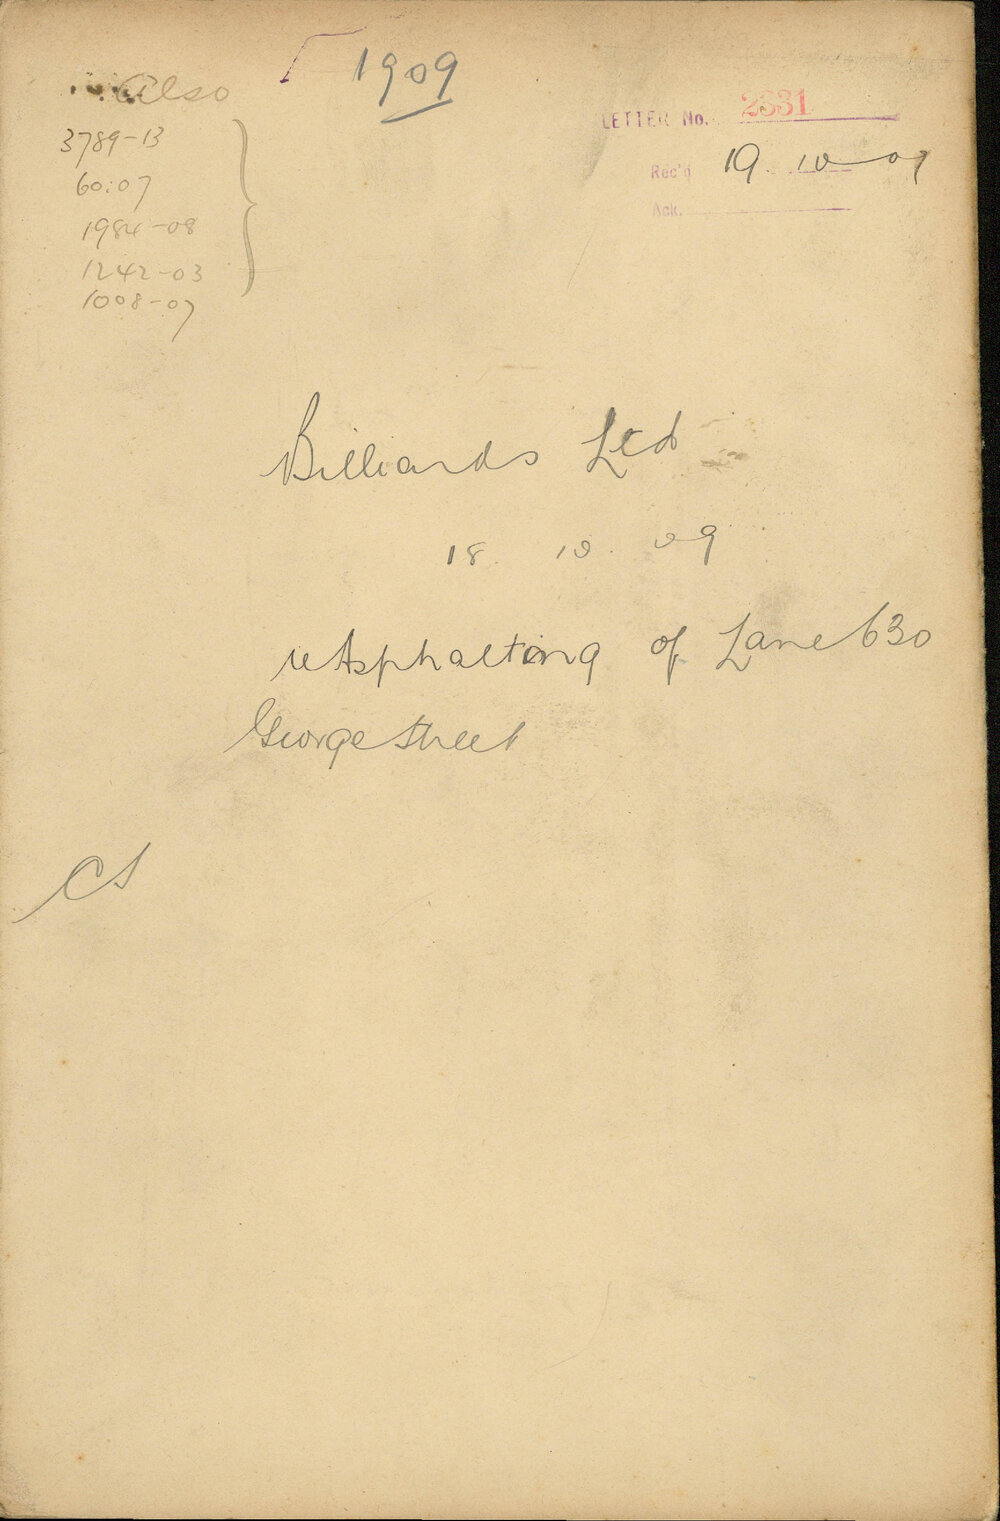 1909
Also
LETTER No. 2331
3789-13
Rec'd 19.10-09
60.07
Ack.
1984-08
1242-03
1008-07
Billiards Ltd
18. 10. 09
re Asphalting of Lane 630
George Street
CS